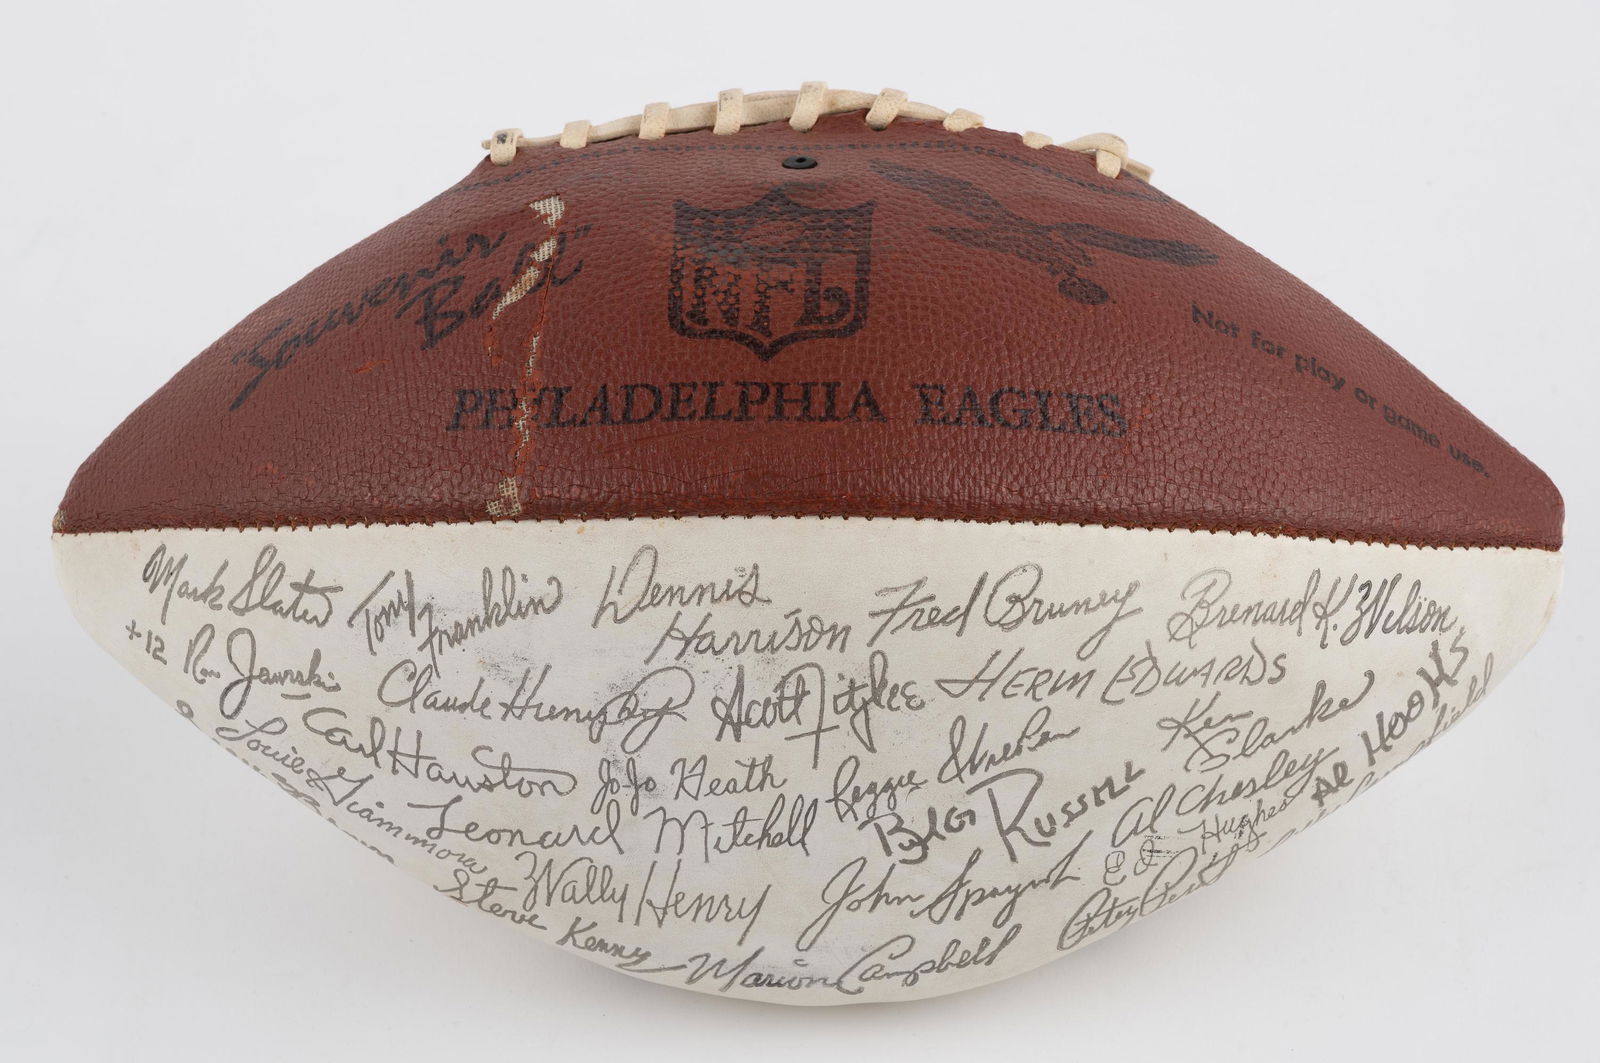 "Souvenir Ball"
NFL
Not for play or game use.
PHILADELPHIA EAGLES
Mark Slater
Tony Franklin
Dennis Harrison
Fred Bruney
Brenard K. Wilson
+12 Ron Jaworski
Claude Humphrey
Scott Fitzkee
HERM EDWARDS
Ken Clarke
AL HOOKS
Louie Giammona
Carl Hairston
JoJo Heath
Reggie Wilkes
Leonard Mitchell
Russell
Al Chesley
Ed Hughes
Steve Kenney
Wally Henry
John Spagnola
Petey Perot
Marion Campbell